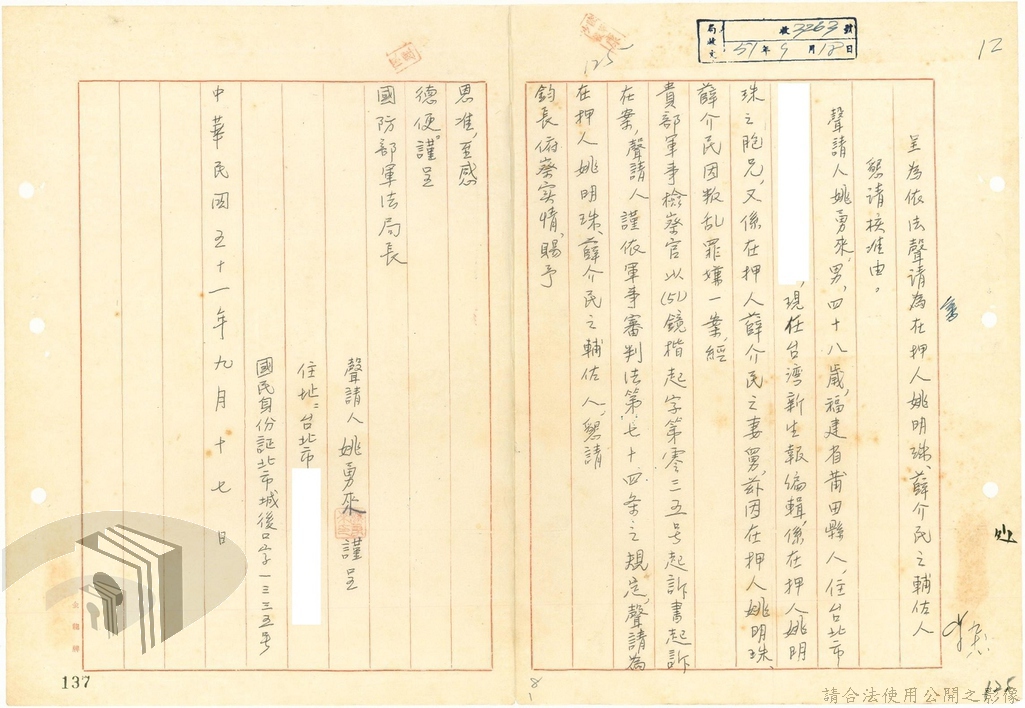 收3263號
局收文
51年9月18日
12
125
呈為依法聲請為在押人姚明珠、薛介民之輔佐人
懇請核准由。
聲請人姚勇來,男,四十八歲,福建省莆田縣人,住台北市
,現任台湾新生報編輯,係在押人姚明
珠之胞兄,又係在押人薛介民之妻舅,茲因在押人姚明珠、
薛介民因叛乱罪嫌一案,經
貴部軍事檢察官以(51)鏡楷起字第零三五号起訴書起訴
在案,聲請人謹依軍事審判法第七十四条之規定,聲請為
在押人姚明珠、薛介民之輔佐人,懇請
鈞長俯察实情,賜予
恩准,至感
德便。謹呈
國防部軍法局長
聲請人 姚勇來 謹呈
住址:台北市
國民身份証北市城後口字一三三五号
中華民國五十一年九月十七日
137
125
請合法使用公開之影像